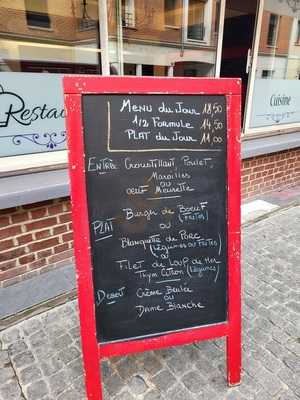 Restau
Cuisine
Menu du Jour 18,50
1/2 Formule 14,50
Plat du Jour 11,00
Entrée Croustillant Poulet
Maroilles
ou
oeuf Meurette
Plat
Burger de Boeuf (Frites)
ou
Blanquette de Porc
(Légumes ou Frites)
ou
Filet de Loup de Mer
Thym Citron (Légumes)
Dessert Crème Brulée
ou
Dame Blanche